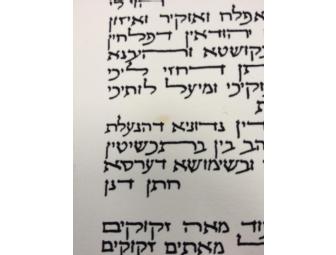 אפלח ואוקיר ואיזון
יהודאין דפלחין
בקושטא ויהיבנא
תן דחזי ליכי
קיכי ומיעל לותיכי
ת
דין נדוניא דהנעלת
הב בין בתכשיטין
ובשימושא דערסא
חתן דנן
וד מאה זקוקים
מאתים זקוקים